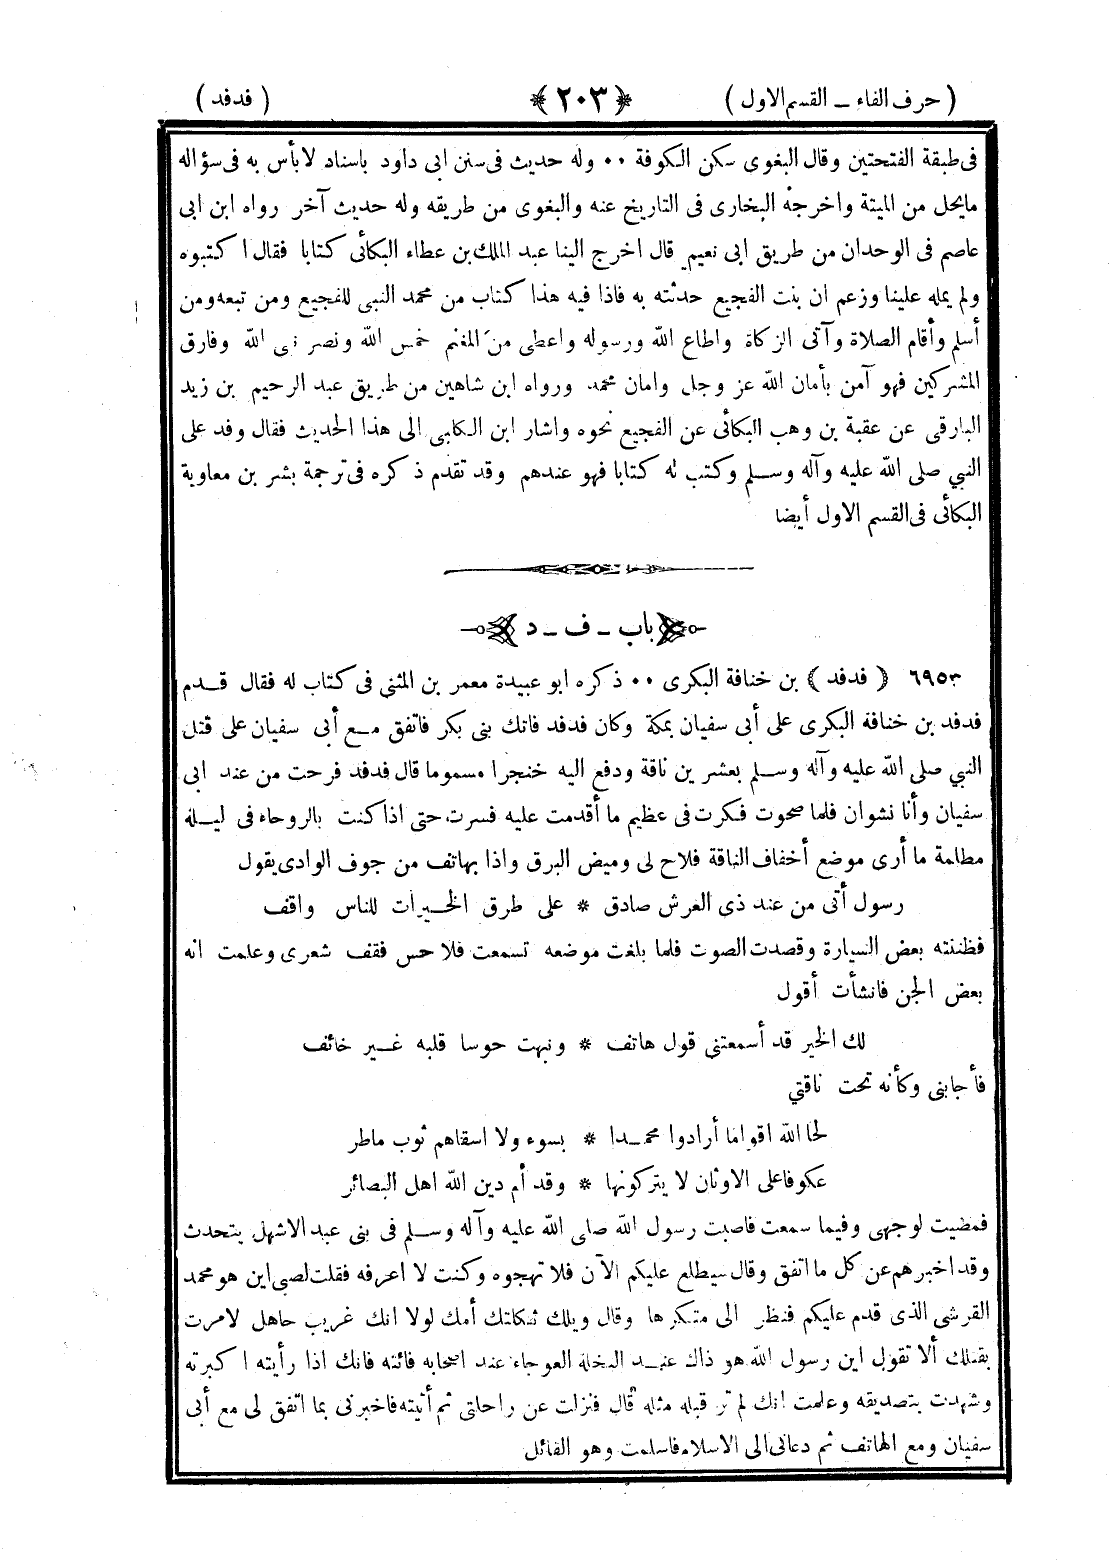 ( حرف الفاء ـ القسم الاول ) ﴿ ٢٠٣ ﴾ ( فدفد )
فى طبقة الفتحتين وقال البغوى سكن الكوفة ٠٠ وله حديث فى سنن ابى داود باسناد لابأس به فى سؤاله
مايحل من الميتة واخرجه البخارى فى التاريخ عنه والبغوى من طريقه وله حديث آخر رواه ابن ابى
عاصم فى الوحدان من طريق ابى نعيم قال اخرج الينا عبد الملك بن عطاء البكائى كتابا فقال اكتبوه
ولم يمله علينا وزعم ان بنت الفجيع حدثته به فاذا فيه هذا كتاب من محمد النبى للفجيع ومن تبعه ومن
أسلم وأقام الصلاة وآتى الزكاة واطاع الله ورسوله واعطى من المغنم خمس الله ونصر نبى الله وفارق
المشركين فهو آمن بأمان الله عز وجل وامان محمد ورواه ابن شاهين من طريق عبد الرحيم بن زيد
البارقى عن عقبة بن وهب البكائى عن الفجيع نحوه واشار ابن الكلبى الى هذا الحديث فقال وفد على
النبي صلى الله عليه وآله وسلم وكتب له كتابا فهو عندهم وقد تقدم ذكره فى ترجمة بشر بن معاوية
البكائى فى القسم الاول أيضا
باب ـ ف ـ د
٦٩٥٣ ( فدفد ) بن خنافة البكرى ٠٠ ذكره ابو عبيدة معمر بن المثنى فى كتاب له فقال قدم
فدفد بن خنافة البكرى على أبى سفيان بمكة وكان فدفد فاتك بنى بكر فاتفق مع أبى سفيان على قتل
النبي صلى الله عليه وآله وسلم بعشرين ناقة ودفع اليه خنجرا مسموما قال فدفد فرحت من عند ابى
سفيان وأنا نشوان فلما صحوت فكرت فى عظيم ما أقدمت عليه فسرت حتى اذا كنت بالروحاء فى ليلة
مظلمة ما أرى موضع أخفاف الناقة فلاح لى وميض البرق واذا بهاتف من جوف الوادى يقول
رسول أتى من عند ذى العرش صادق * على طرق الخيرات للناس واقف
فظننته بعض السيارة وقصدت الصوت فلما بلغت موضعه تسمعت فلا حس فقف شعرى وعلمت انه
بعض الجن فانشأت أقول
لك الخير قد أسمعتنى قول هاتف * ونبهت حوسا قلبه غير خائف
فأجابنى وكأنه تحت ناقتي
لحا الله اقواما أرادوا محمدا * بسوء ولا اسقاهم ثوب ماطر
عكوفا على الاوثان لا يتركونها * وقد أم دين الله اهل البصائر
فمضيت لوجهى وفيما سمعت فاصبت رسول الله صلى الله عليه وآله وسلم فى بنى عبد الاشهل يتحدث
وقد اخبرهم عن كل ما اتفق وقال سيطلع عليكم الآن فلا تهجوه وكنت لا اعرفه فقلت لصبى اين هو محمد
القرشى الذى قدم عليكم فنظر الى متكرها وقال ويلك ثكلتك أمك لولا انك غريب جاهل لامرت
بقتلك ألا تقول اين رسول الله هو ذاك عند النخلة العوجاء عند اصحابه فائته فانك اذا رأيته اكبرته
وشهدت بتصديقه وعلمت انك لم تر قبله مثله قال فنزلت عن راحلتى ثم أتيته فاخبرنى بما اتفق لى مع أبى
سفيان ومع الهاتف ثم دعانى الى الاسلام فاسلمت وهو القائل